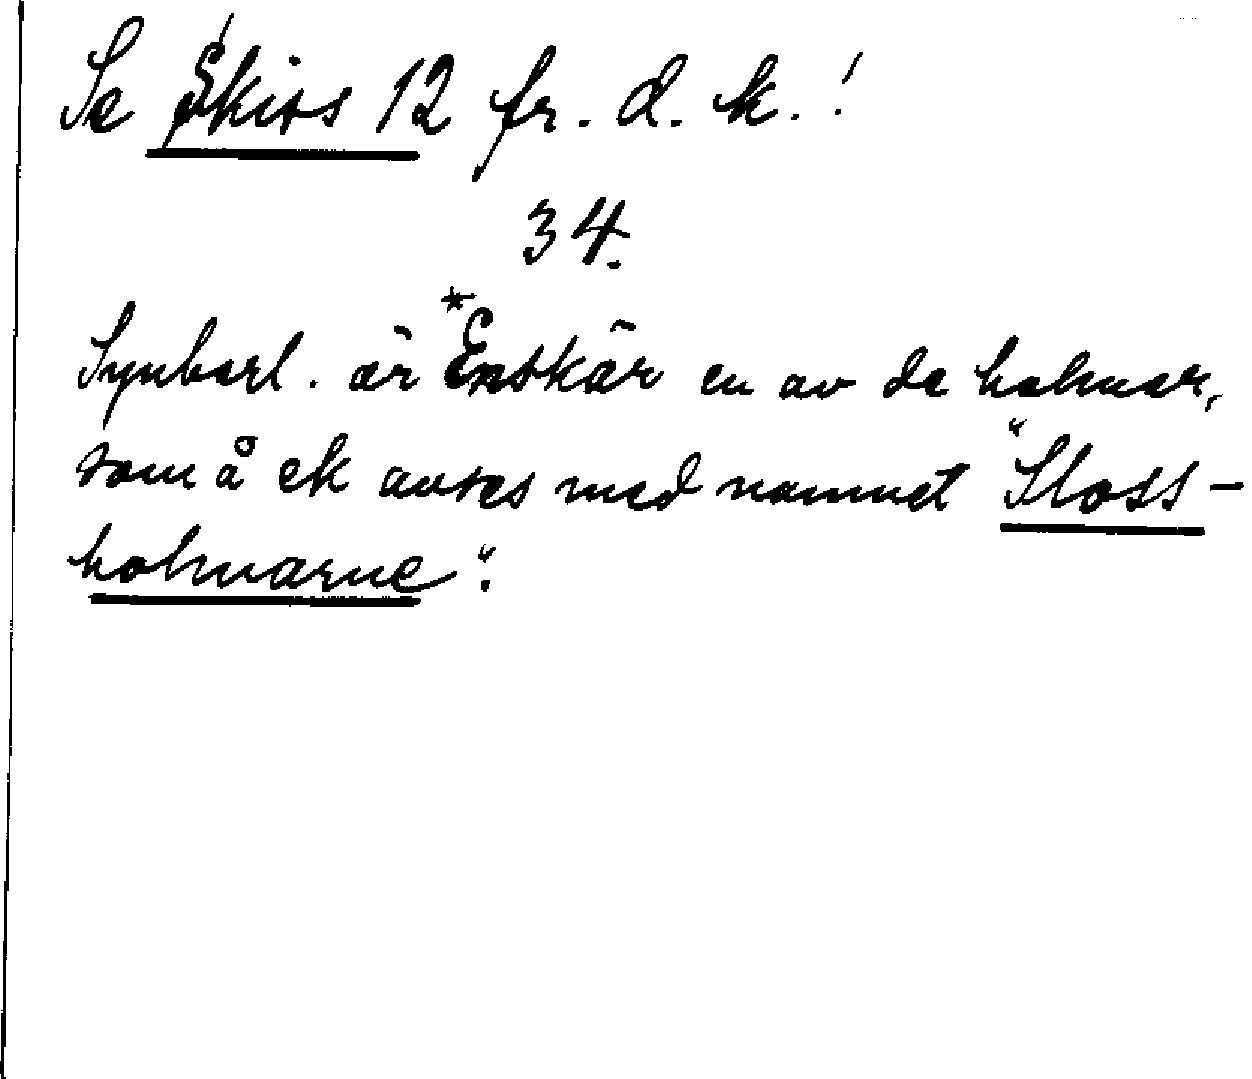 Se Skiss 12 fr. d. k.!
34.
Synbarl. är *Enskär en av de holmar,
som å ek avses med namnet "Sloss-
holmarne".